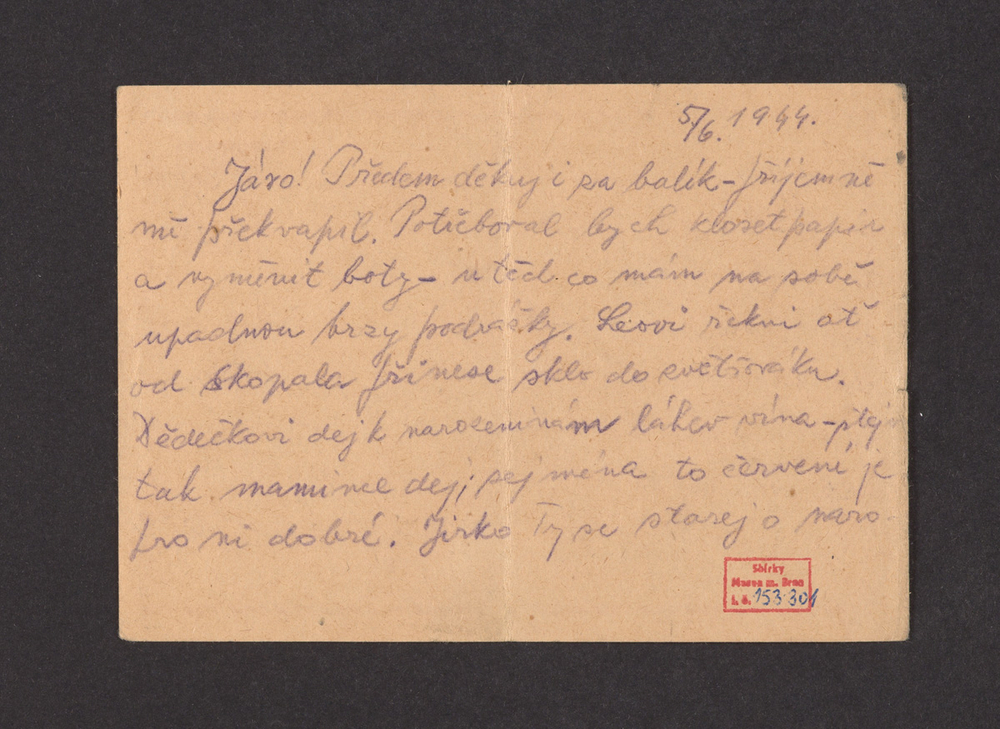 5/6. 1944.
Járo! Předem děkuji za balík - příjemně
mě překvapil. Potřeboval bych klosetpapír
a vyměnit boty - u těch co mám na sobě
upadnou brzy podrážky. Leovi řekni ať
od Skopala přinese sklo do světlováku.
Dědečkovi dej k narozeninám láhev vína - stej
tak mamince dej, zejména to červené je
pro ni dobré. Jirko Ty se starej o naro
Sbírky
Musea m. Brna
i. č. 153 301